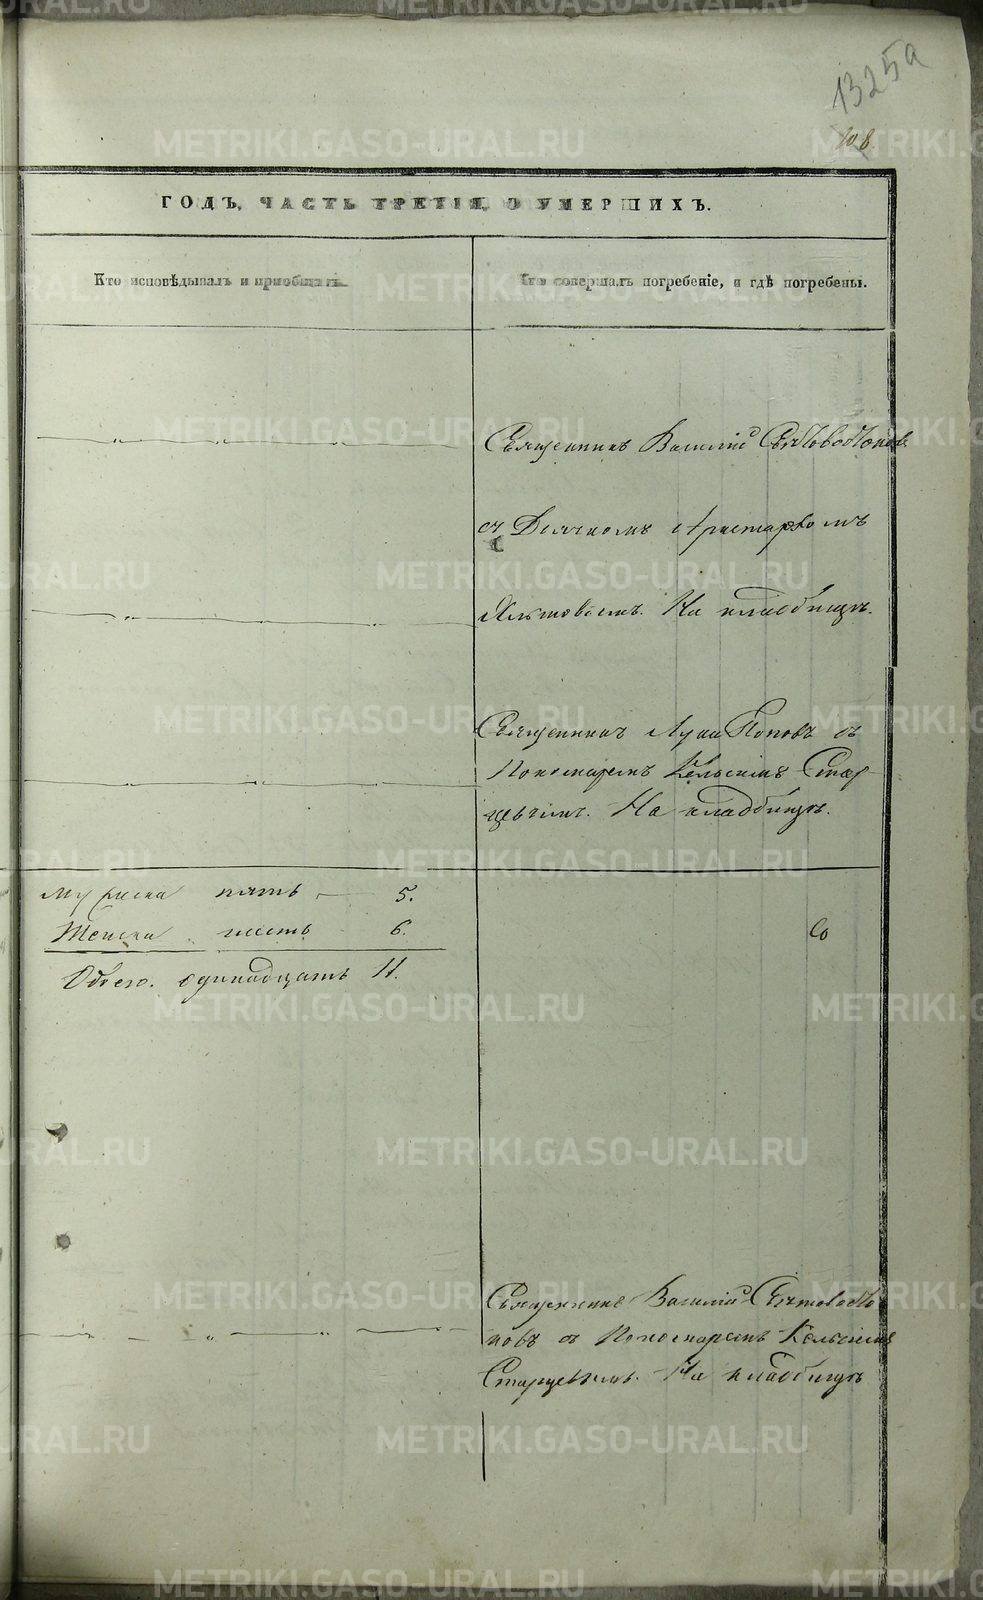 1325а
108.
ГОДЪ, ЧАСТЬ ТРЕТІЯ, О УМЕРШИХЪ.
Кто исповѣдывалъ и пріобщалъ.
Кто совершалъ погребеніе, и гдѣ погребены.
Священникъ Василій
съ Дьячкомъ Аристархомъ
На кладбищѣ.
Священникъ Лука Поповъ съ
Пономаремъ Стар-
цевымъ. На кладбищѣ.
Мужеска пять — 5.
Женска шесть 6.
Обоего. одинадцать 11.
Священникъ Василій
новъ съ Пономаремъ
Старцевымъ. На кладбищѣ
METRIKI.GASO-URAL.RU